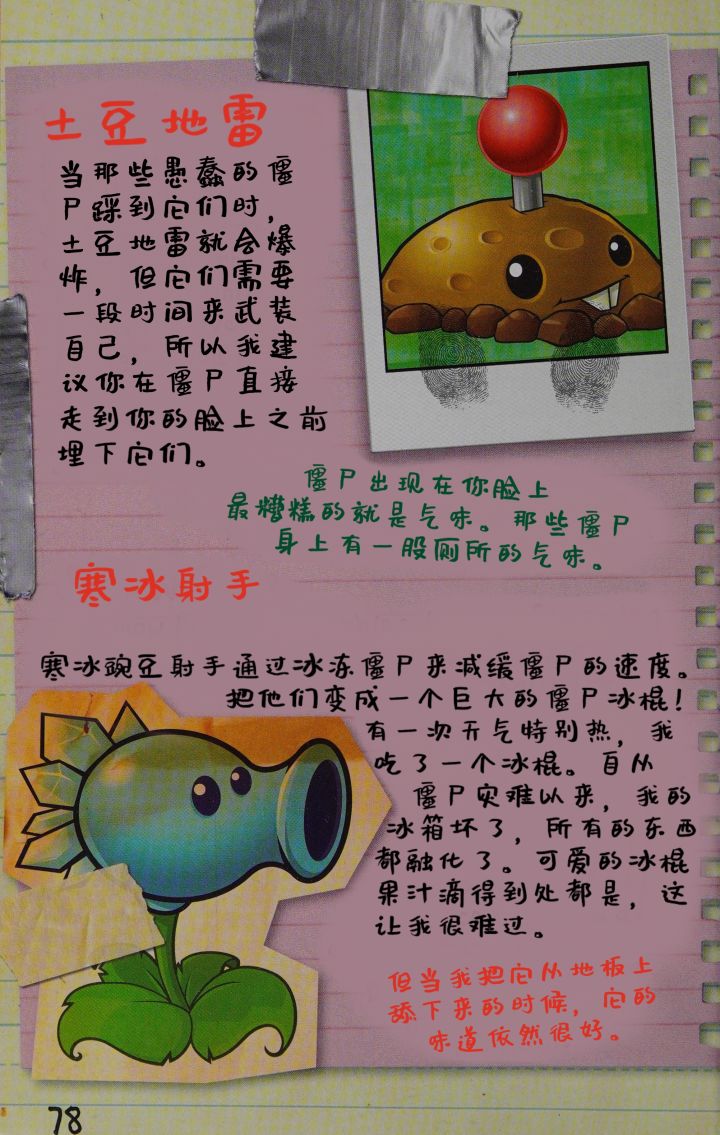 土豆地雷
当那些愚蠢的僵
尸踩到它们时，
土豆地雷就会爆
炸，但它们需要
一段时间来武装
自己，所以我建
议你在僵尸直接
走到你的脸上之前
埋下它们。
僵尸出现在你脸上
最糟糕的就是气味。那些僵尸
身上有一股厕所的气味。
寒冰射手
寒冰豌豆射手通过冰冻僵尸来减缓僵尸的速度。
把他们变成一个巨大的僵尸冰棍！
有一次天气特别热，我
吃了一个冰棍。自从
僵尸灾难以来，我的
冰箱坏了，所有的东西
都融化了。可爱的冰棍
果汁滴得到处都是，这
让我很难过。
但当我把它从地板上
舔下来的时候，它的
味道依然很好。
78